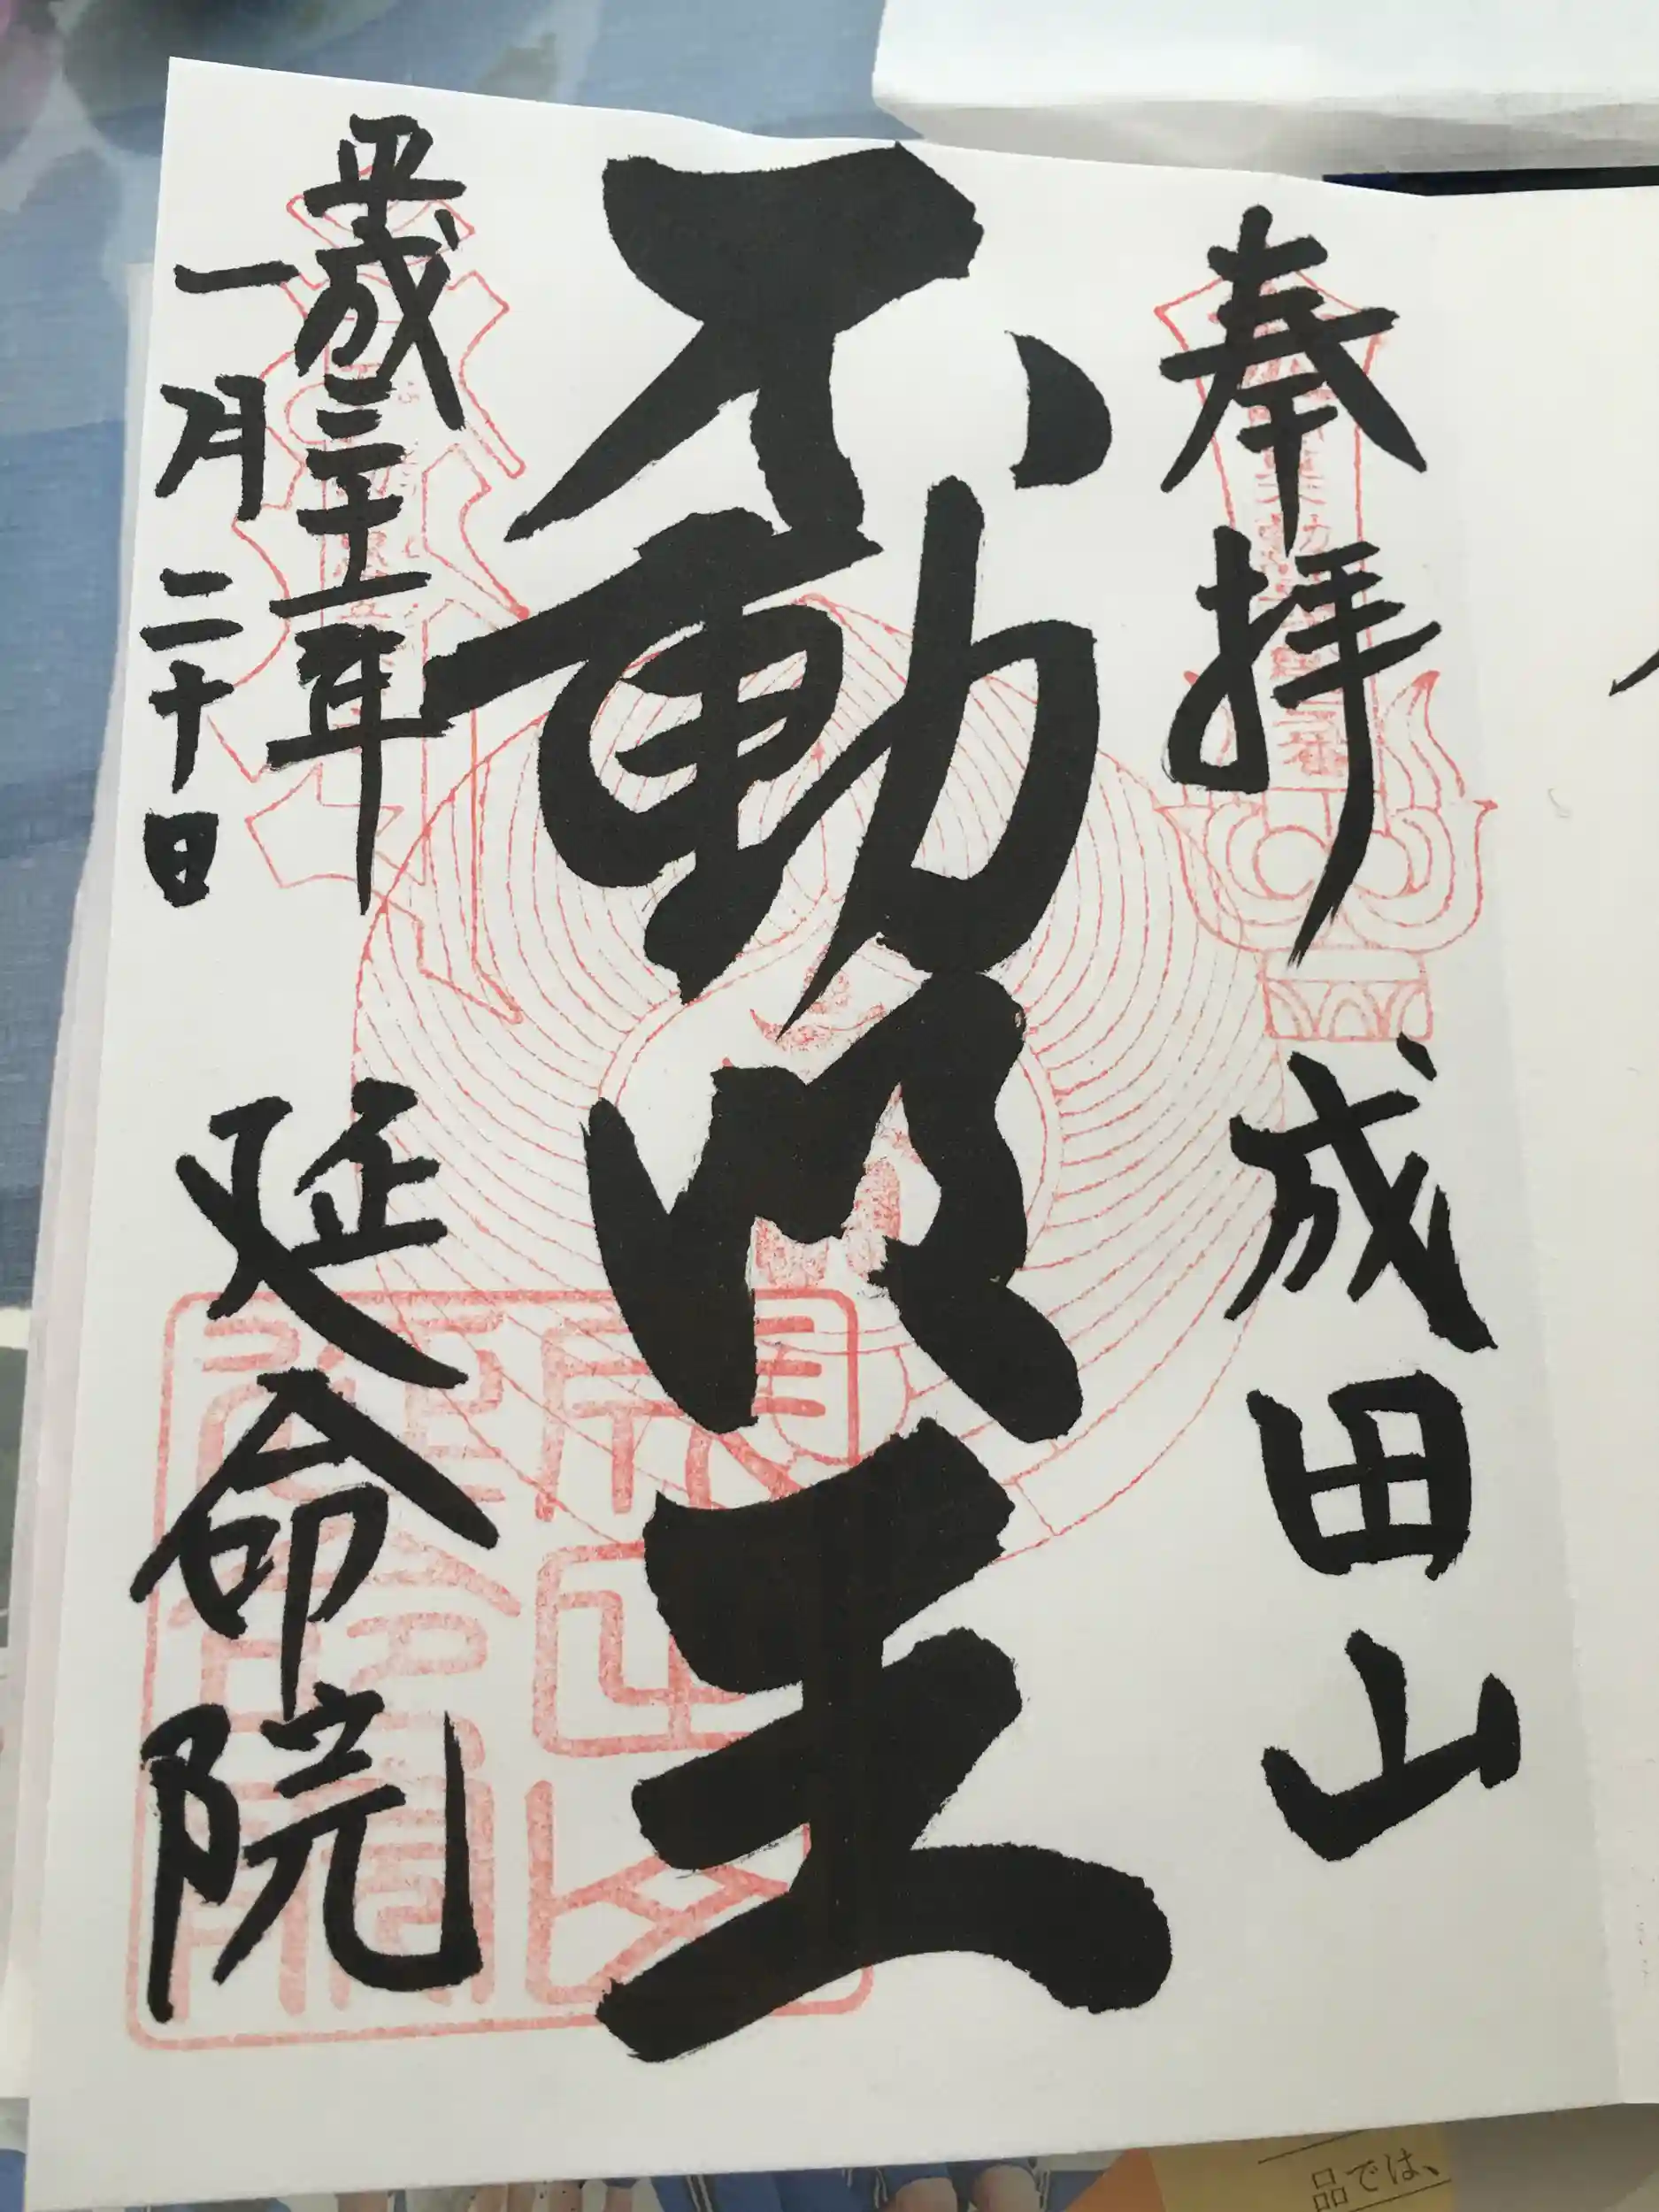 奉拝 成田山
不動明王
平成三十一年
一月二十日 延命院
品では、